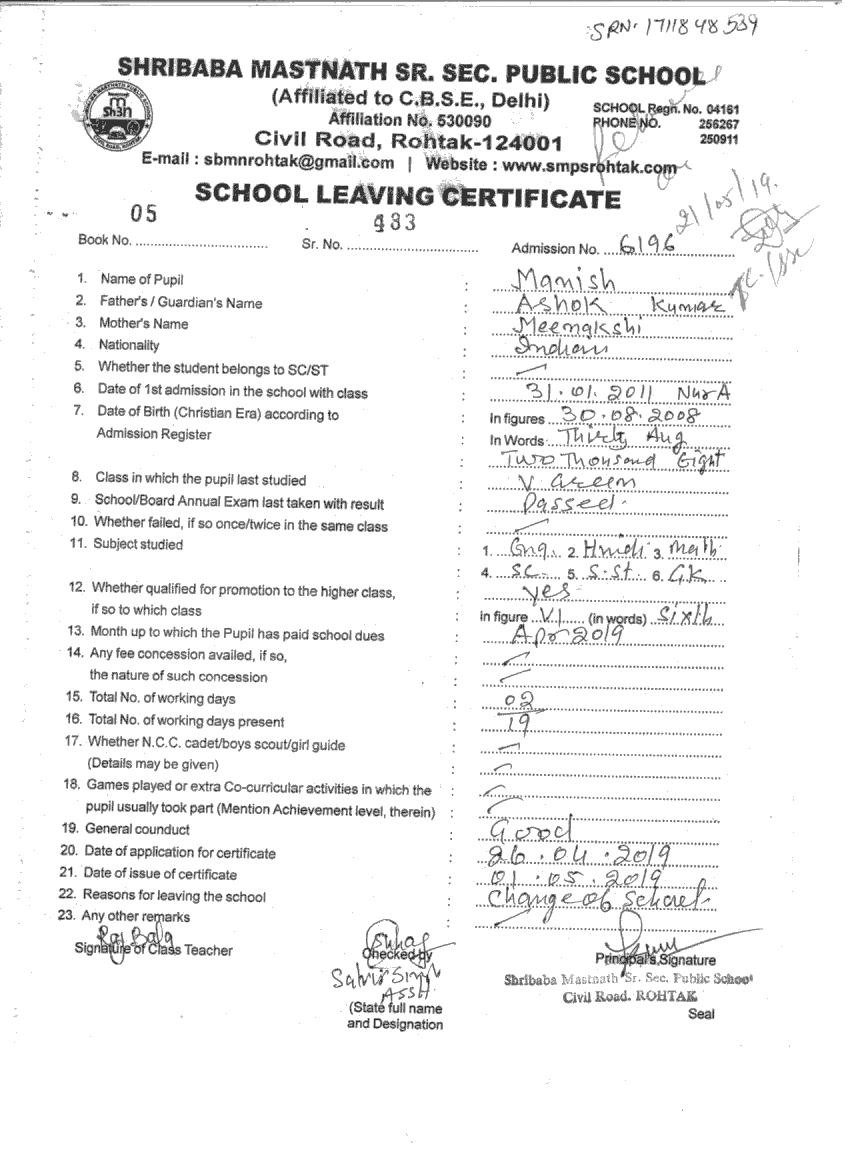 SRN: 1711848539
SHRIBABA MASTNATH SR. SEC. PUBLIC SCHOOL
(Affiliated to C.B.S.E., Delhi)
Affiliation No. 530090
SCHOOL Regn. No. 04161
PHONE NO. 256267
250911
Civil Road, Rohtak-124001
E-mail : sbmnrohtak@gmail.com | Website : www.smpsrohtak.com
SCHOOL LEAVING CERTIFICATE
21/05/19.
Book No. 05 Sr. No. 433 Admission No. 6196
1. Name of Pupil : Manish
2. Father's / Guardian's Name : Ashok Kumar
3. Mother's Name : Meenakshi
4. Nationality : Indian
5. Whether the student belongs to SC/ST :
6. Date of 1st admission in the school with class : 31.01.2011 Nur A
7. Date of Birth (Christian Era) according to : In figures 30.08.2008
Admission Register : In Words Thirty Aug
: Two Thousand Eight
8. Class in which the pupil last studied : V Green
9. School/Board Annual Exam last taken with result : Passed
10. Whether failed, if so once/twice in the same class :
11. Subject studied : 1. Eng. 2. Hindi 3. Math
4. SC 5. S.St. 6. G.K
12. Whether qualified for promotion to the higher class, : yes
if so to which class in figure VI (in words) Sixth
13. Month up to which the Pupil has paid school dues : Apr 2019
14. Any fee concession availed, if so, :
the nature of such concession :
15. Total No. of working days : 02
16. Total No. of working days present : 19
17. Whether N.C.C. cadet/boys scout/girl guide :
(Details may be given) :
18. Games played or extra Co-curricular activities in which the :
pupil usually took part (Mention Achievement level, therein) :
19. General counduct : Good
20. Date of application for certificate : 26.04.2019
21. Date of issue of certificate : 01.05.2019
22. Reasons for leaving the school : Change of School
23. Any other remarks :
Raj Bala
Signature of Class Teacher
Checked by
ASSH.
(State full name
and Designation
Principal's Signature
Shribaba Mastnath Sr. Sec. Public School
Civil Road. ROHTAK
Seal